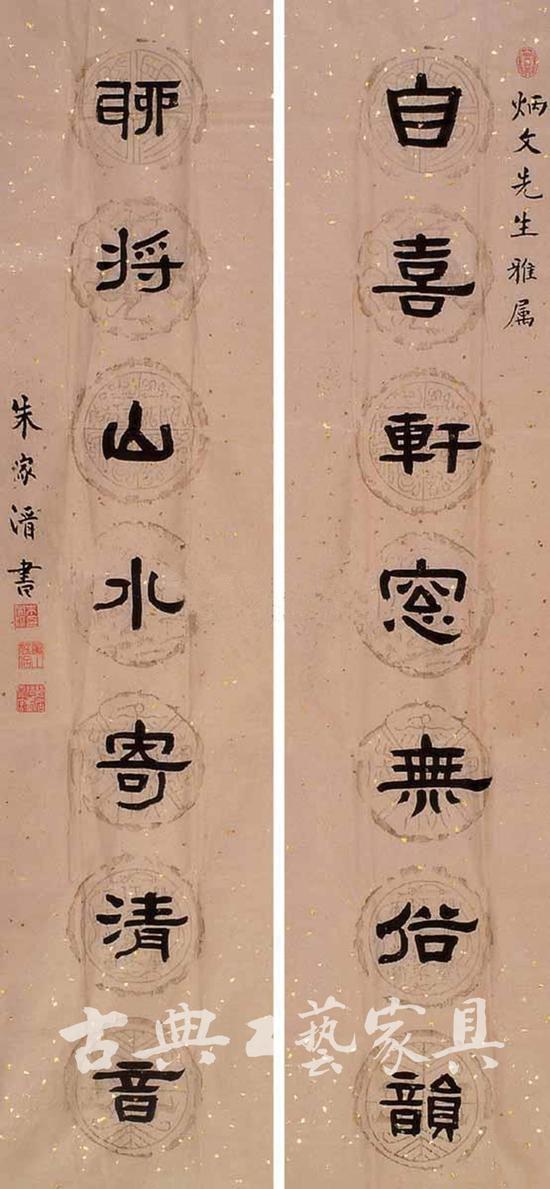 炳文先生雅属
自喜軒窓無俗韻
聊将山水寄清音
朱家溍書
古典工藝家具